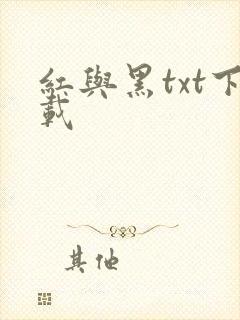 紅與黑txt下
載
其他